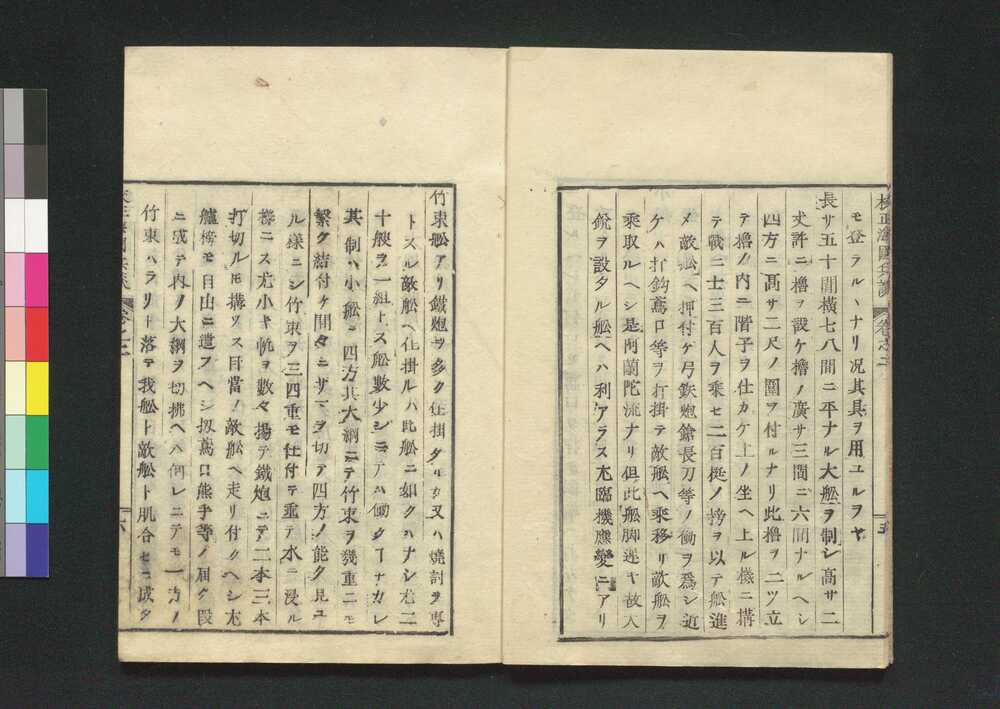 校正海國兵談 卷之二 五
モ登ラルヽナリ况其具ヲ用ユルヲヤ
長サ五十間横七八間ニ平ナル大舩ヲ制シ髙サ二
丈許ニ櫓ヲ設ケ櫓ノ廣サ三間ニ六間ナルヘシ
四方ニ髙サ二尺ノ圍ヲ付ルナリ此櫓ヲ二ツ立
テ櫓ノ内ニ階子ヲ仕カケ上ノ坐ヘ上ル樣ニ構
テ戰士三百人ヲ乘セ二百挺ノ ヲ以テ舩進
メ敵舩ヘ押付ケ弓鉄炮鎗長刀等ノ働ヲ爲シ近
ケハ打鈎鳶口等ヲ打掛テ敵舩ヘ乘移リ敵舩ヲ
乘取ルヘシ是阿蘭陀流ナリ但此舩脚遲キ故入
鋭ヲ設タル舩ヘハ利アラス尤臨機應變ニアリ
竹束舩アリ鐵炮ヲ多ク仕掛タルカ又ハ燒討ヲ専
トスル敵舩ヘ仕掛ルハ此舩ニ如クハナシ尤二
十艘ヲ一組トス舩數少シニテハ働クコナカレ
其制ハ小舩ノ四方其大綱ニテ竹束ヲ幾重ニモ
繫ク結付ケ間々ニサマヲ切テ四方ノ能ク見ユ
ル樣ニシ竹束ヲ三四重モ仕付テ垂テ水ニ浸ル
樣ニス尤小キ帆ヲ數々揚テ鐵炮ニテ二本三本
打切ルモ構ヌス目當ノ敵舩ヘ走リ付クヘシ尤
艫 モ自由ニ遣フヘシ扨鳶口熊手等ノ届ク
ニ成テ内ノ大綱ヲ切拂ヘハ何レニテモ一方ノ
竹束ハラリト落テ我舩ト敵舩ト肌合セニ成タ
卷之二 六